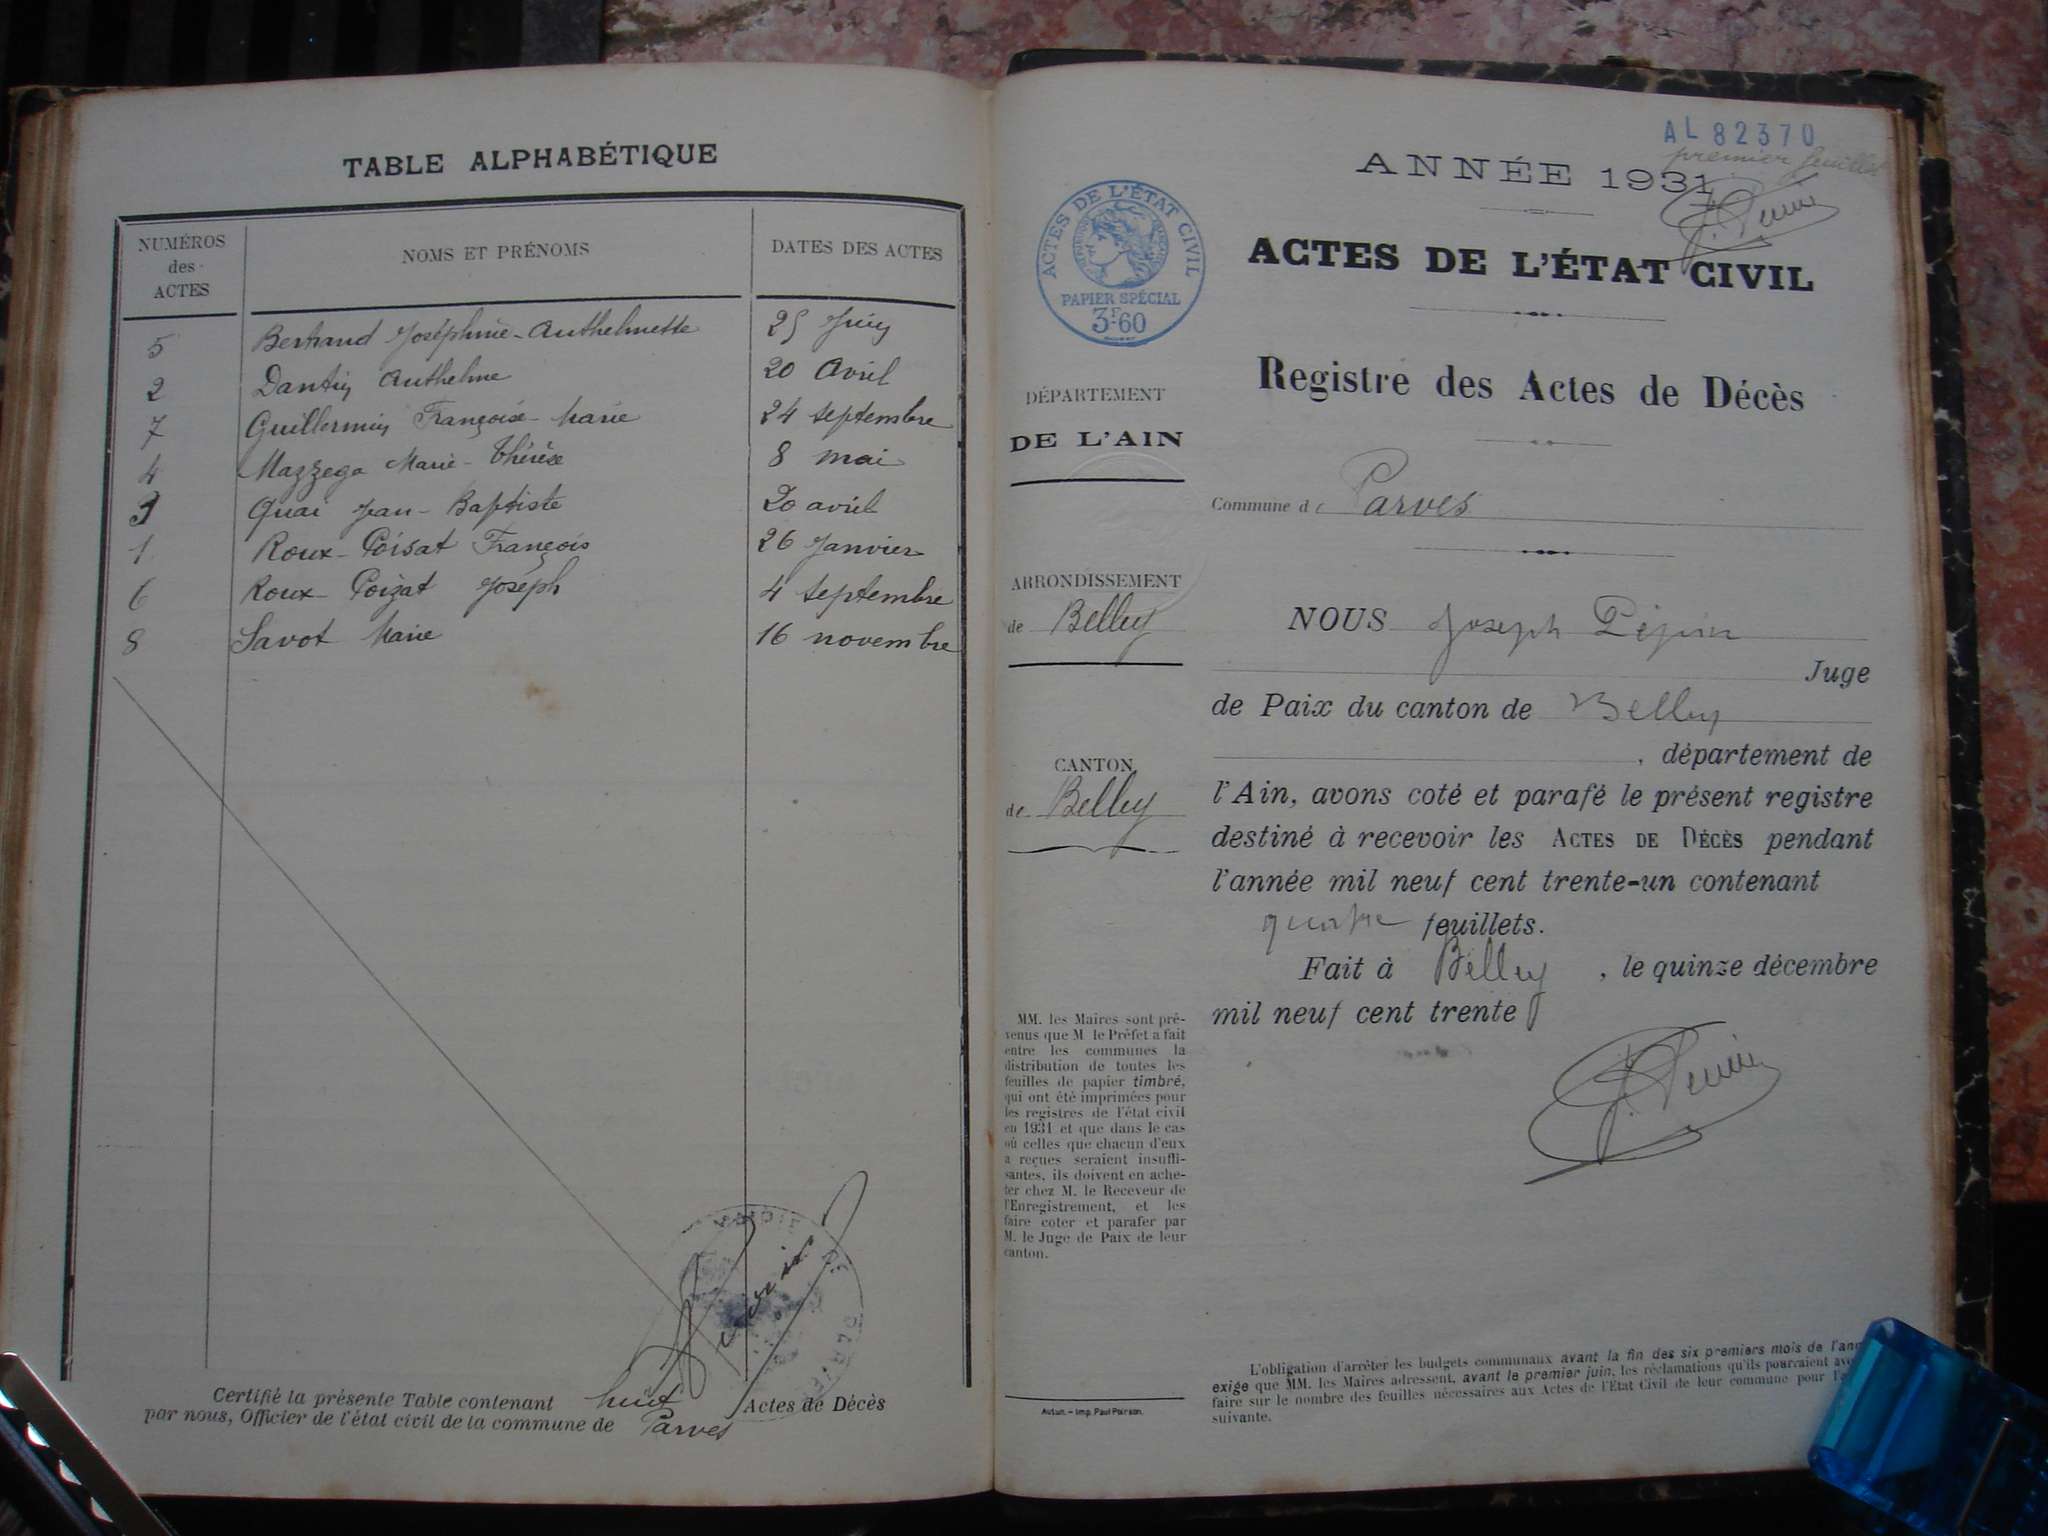 TABLE ALPHABÉTIQUE
NUMÉROS des ACTES
NOMS ET PRÉNOMS
DATES DES ACTES
5 Bertrand Joséphine-Anthelmette 25 Juin
2 Dantin Anthelme 20 Avril
7 Guillermin Françoise-Marie 24 septembre
4 Mazzega Marie-Thérèse 8 mai
3 Quai Jean-Baptiste 20 avril
1 Roux-Poisat François 26 Janvier
6 Roux-Poizat Joseph 4 septembre
8 Savot Marie 16 novembre
MAIRIE DE PARVES
Certifié la présente Table contenant huit Actes de Décès
par nous, Officier de l'état civil de la commune de Parves
AL 82370
premier feuillet
ANNÉE 1931
ACTES DE L'ÉTAT CIVIL
PAPIER SPÉCIAL
3F60
ACTES DE L'ÉTAT CIVIL
Registre des Actes de Décès
DÉPARTEMENT
DE L'AIN
Commune de Parves
ARRONDISSEMENT
de Belley
CANTON
de Belley
NOUS Joseph Pépin
Juge
de Paix du canton de Belley
, département de
l'Ain, avons coté et parafé le présent registre
destiné à recevoir les ACTES DE DÉCÈS pendant
l'année mil neuf cent trente-un contenant
quatre feuillets.
Fait à Belley , le quinze décembre
mil neuf cent trente
MM. les Maires sont pré-
venus que M. le Préfet a fait
entre les communes la
distribution de toutes les
feuilles de papier timbré,
qui ont été imprimées pour
les registres de l'état civil
en 1931 et que dans le cas
où celles que chacun d'eux
a reçues seraient insuffi-
santes, ils doivent en ache-
ter chez M. le Receveur de
l'Enregistrement, et les
faire coter et parafer par
M. le Juge de Paix de leur
canton.
Autun. – Imp. Paul Poirson.
L'obligation d'arrêter les budgets communaux avant la fin des six premiers mois de l'ann
exige que MM. les Maires adressent, avant le premier juin, les réclamations qu'ils pourraient av
faire sur le nombre des feuilles nécessaires aux Actes de l'Etat Civil de leur commune pour l'
suivante.